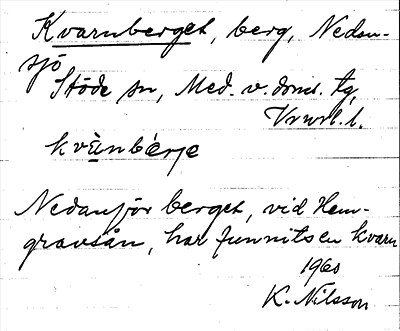 Kvarnberget, berg, Nedan-
sjö
Stöde sn, Med. v. doms. tg,
Vnrl. l.
kvànbérje
Nedanför berget, vid Hem-
gravsån, har funnits en kvarn
1960
K. Nilsson